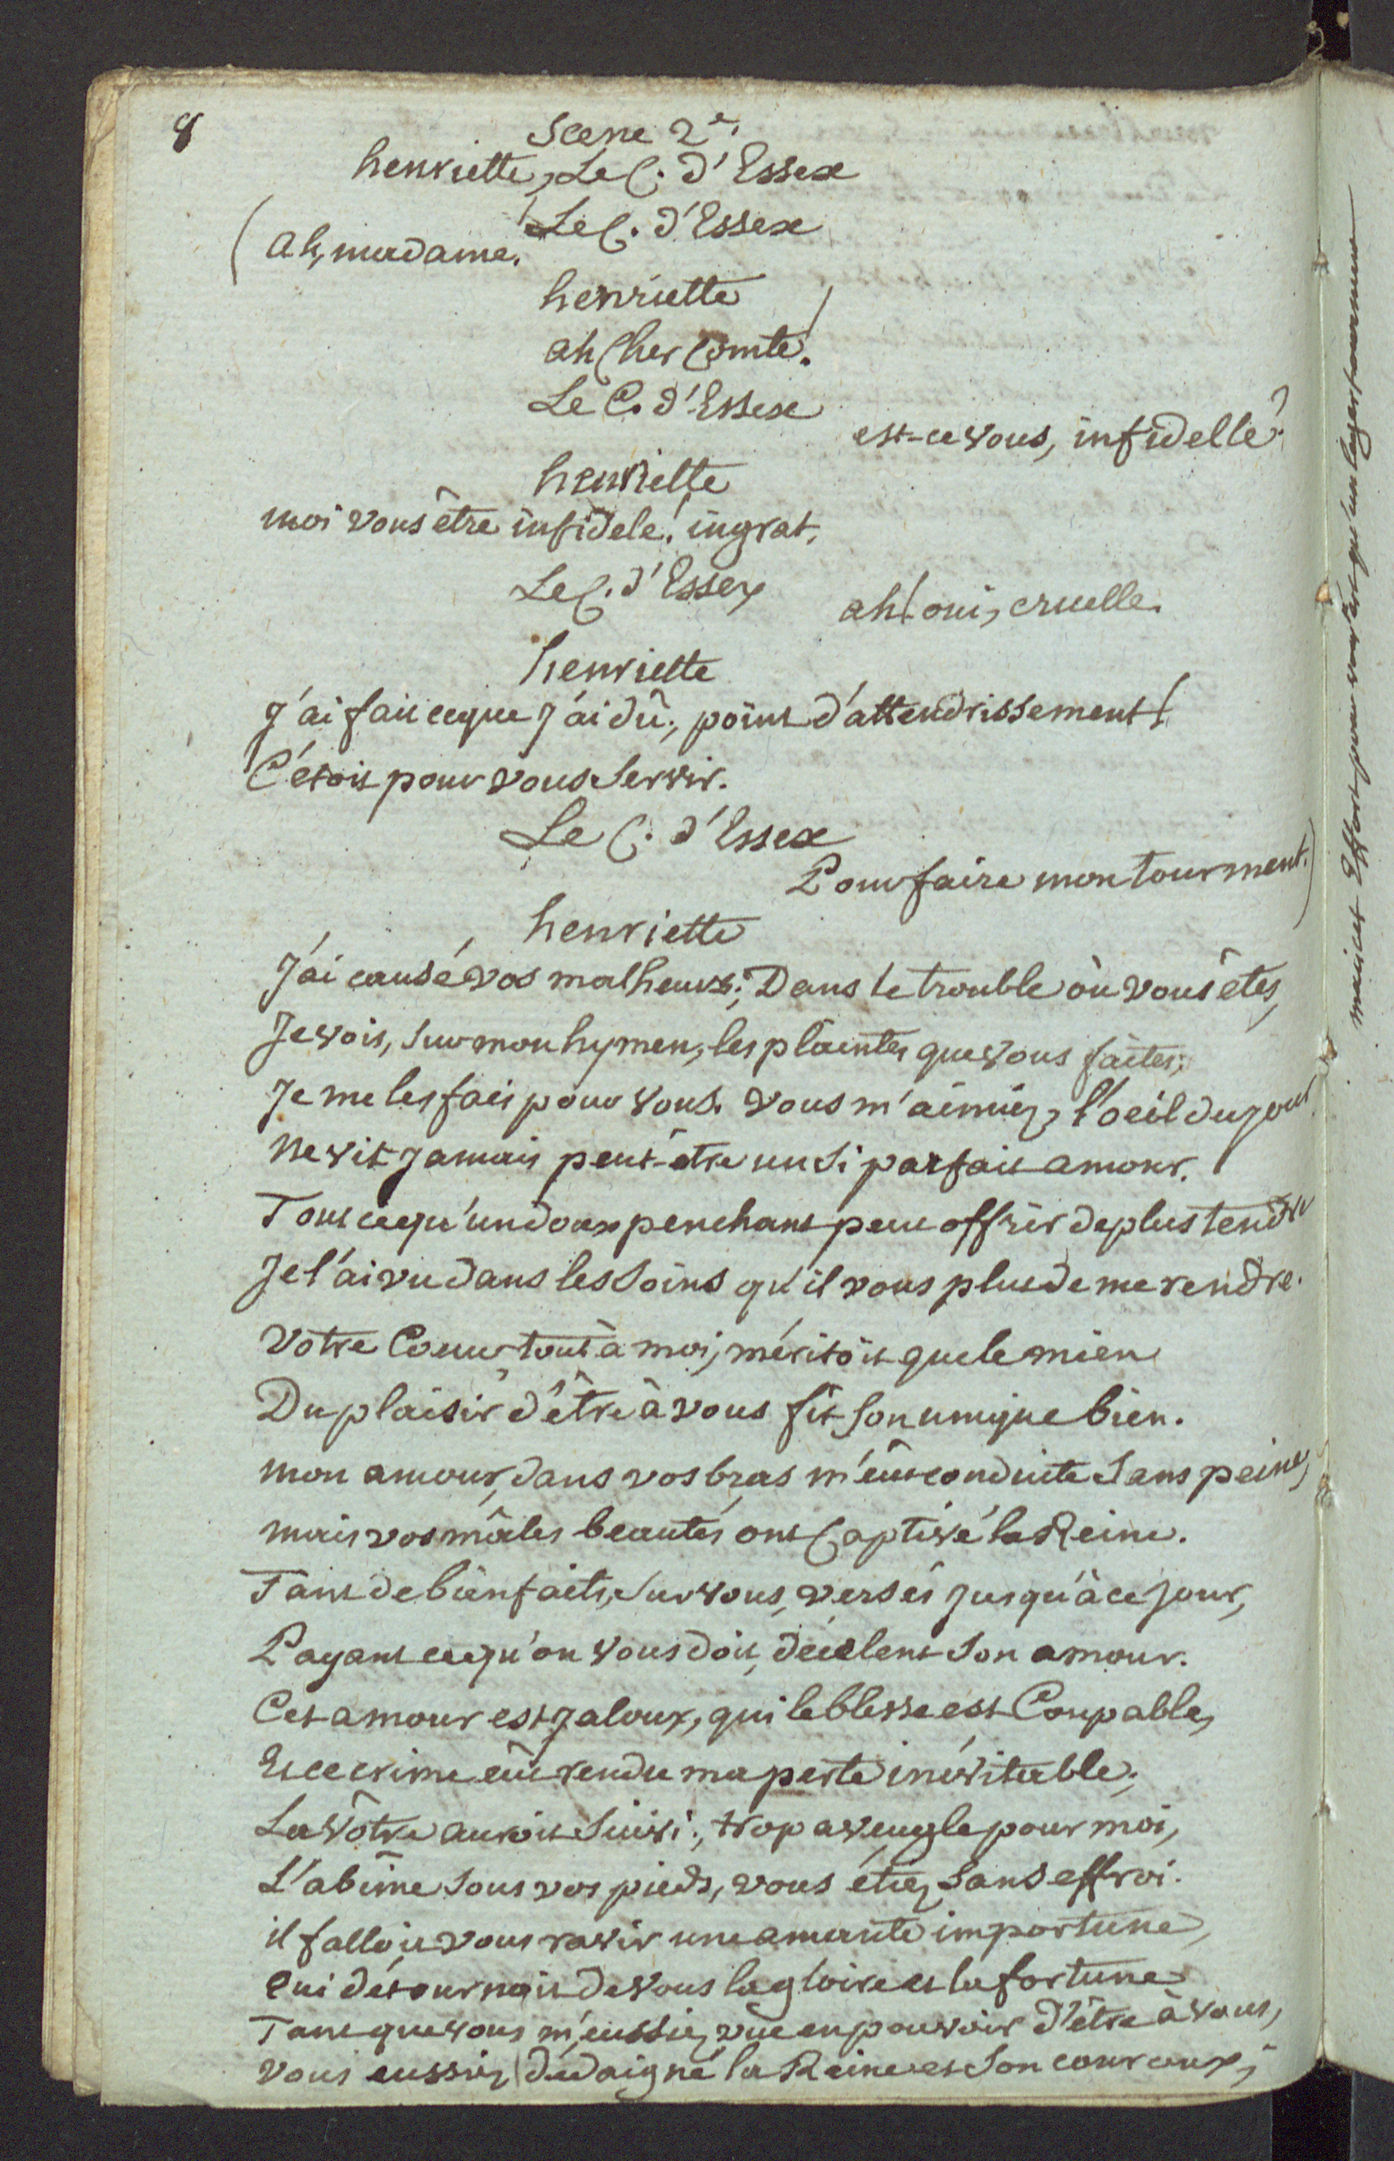 8
Scene 2e.
henriette, Le C. d'Essex
Le C. d'Essex
(ah, madame!
henriette
ah cher Comte!
Le C. d'Essex
est-ce vous, infidelle?
henriette
moi vous être infidele! ingrat.
Le C. d'Essex
ah! oui, cruelle.
henriette
J'ai fait ce que J'ai dû; point d'attendrissement!
C'étoit pour vous servir.
Le C. d'Essex
Pour faire mon tourment.)
henriette
J'ai causé vos malheurs; Dans le trouble où vous êtes,
Je vois, sur mon hymen, les plaintes que vous faites;
Je me les fais pour vous. vous m'aimiez, l'oeil du jour
ne vit jamais peut-être un si parfait amour.
Tout ce qu'un doux penchant peut offrir de plus tendre
Je l'ai vu dans les soins qu'il vous plut de me rendre.
Votre Coeur tout à moi, méritoit que le mien
Du plaisir d'être à vous fit son unique bien.
mon amour, dans vos bras m'eût conduite sans peine,
mais vos mâles beautés ont Captivé la Reine.
Tant de bienfaits, sur vous, versés jusqu'à ce jour,
Payant ce qu'on vous doit, décelent son amour.
Cet amour est jaloux, qui le blesse est Coupable,
Et ce crime eût rendu ma perte inévitable;
La vôtre auroit suivi; trop aveugle pour moi,
L'abime sous vos pieds, vous étiez sans effroi.
il falloit vous ravir une amante importune,
Qui détournoit de vous la gloire et la fortune
Tant que vous m'eussiez vüe en pouvoir d'être à vous,
Vous eussiez dédaigné la Reine et son couroux;
mais cet Effort pour vous n'est qu'un leger